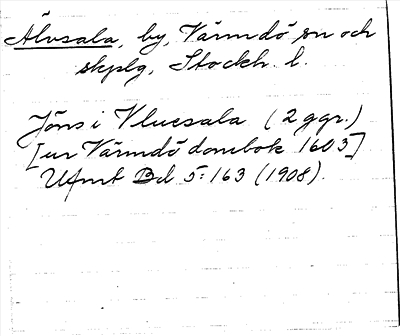 Älvsala, by, Värmdö sn och
skplg, Stockh. l.
Jöns i Vlvesala (2 ggr.)
[ur Värmdö dombok 1603]
Ufmt Bd 5:163 (1908).